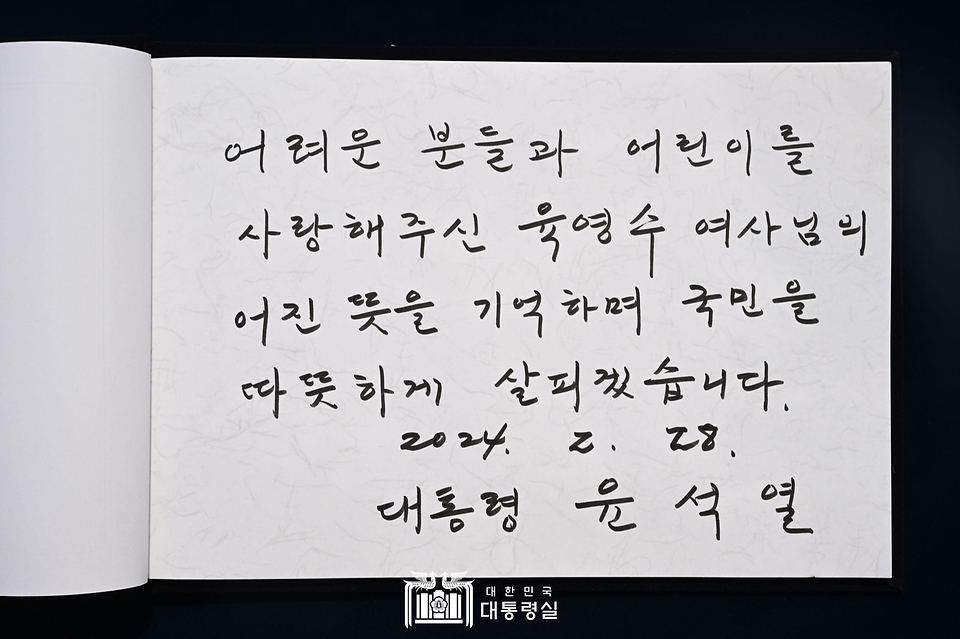 어려운 분들과 어린이를
사랑해주신 육영수 여사님의
어진 뜻을 기억하며 국민을
따뜻하게 살피겠습니다.
2024. 2. 28.
대통령 윤석열
대한민국
대통령실